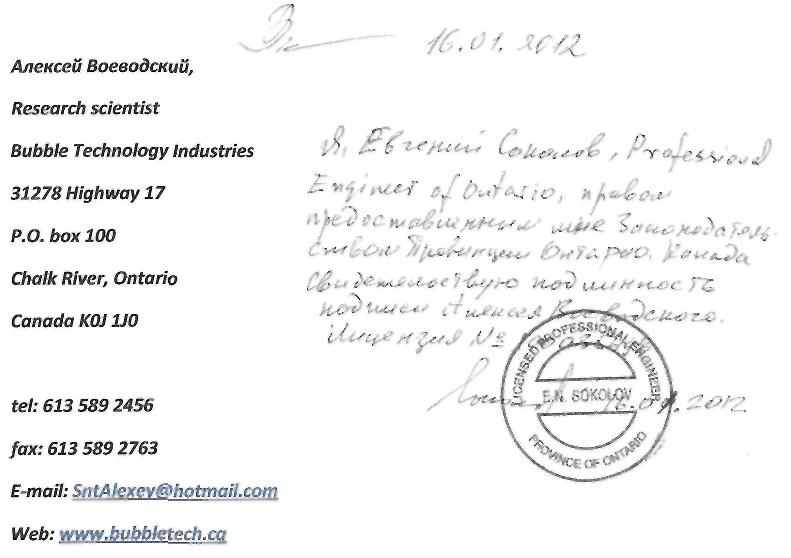 16.01.2012
Алексей Воеводский,
Research scientist
Bubble Technology Industries
31278 Highway 17
P.O. box 100
Chalk River, Ontario
Canada K0J 1J0
tel: 613 589 2456
fax: 613 589 2763
E-mail: SntAlexey@hotmail.com
Web: www.bubbletech.ca
Я, Евгений Соколов, Professional
Engineer of Ontario, правом
предоставленным мне Законодатель-
ством Провинции Онтарио. Канада
свидетельствую подлинность
подписи Алексея Воеводского.
Лицензия №
LICENSED PROFESSIONAL ENGINEER
E.N. SOKOLOV
PROVINCE OF ONTARIO
16.01.2012